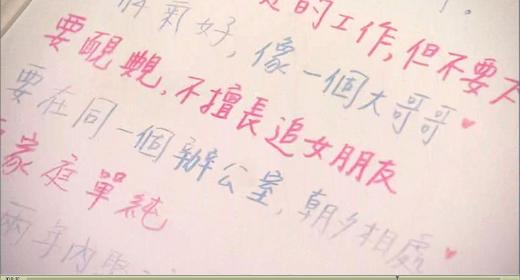 的工作,但不要
好,像一個大哥哥
要靦覥,不擅長追女朋友
要在同一個辦公室,朝夕相處
家庭單純
兩年內